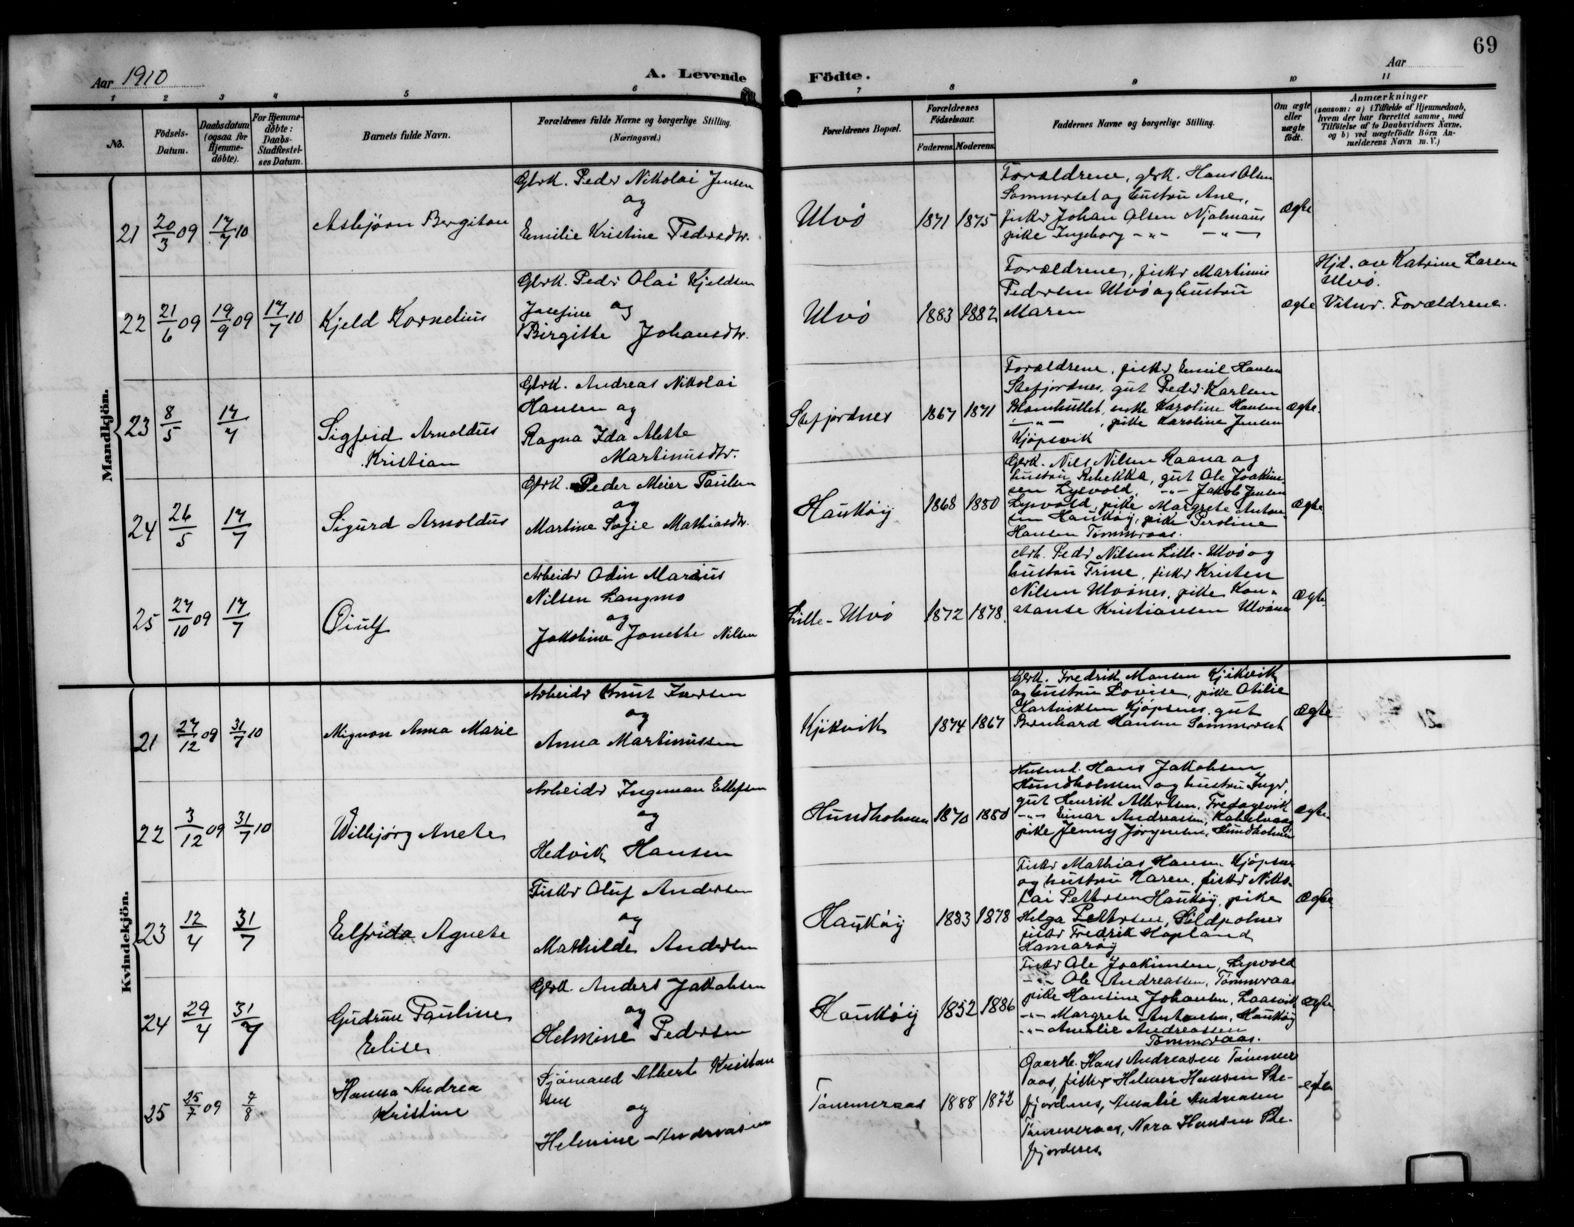 69
Aar 1910
A. Levende
Födte.
Aar
1 2 3 4 5 6 7 8 9 10 11
No.
Födsels-
Datum.
Daabsdatum
(ogsaa for
Hjemme-
döbte).
For Hjemme-
döbte:
Daabs-
Stadfæstel-
ses Datum.
Barnets fulde Navn.
Forældrenes fulde Navne og borgerlige Stilling.
(Næringsvei.)
Forældrenes Bopæl.
Forældrenes
Födselsaar.
Faderens. Moderens.
Faddernes Navne og borgerlige Stilling.
Om ægte
eller
uægte
födt.
Anmærkninger
(saasom: a) i Tilfælde af Hjemmedaab,
hvem der har forrettet samme, med
Tilföielse af to Daabsvidners Navne,
og b) ved uægtefödte Börn An-
melderens Navn m. V.)
Mandkjön.
21 20/3 09 17/7 10
Asbjörn Bergiton
Gbrk. Peder Nikolai Jensen
og
Emilie Kristine Pedersdtr.
Ulvö 1871 1875
Forældrene, gbrk. Hans Olsen
Sommerset og hustru Ane,
fisker Johan Olsen
pike Ingeborg -"- -"-
ægte
22 21/6 09 19/9 09 17/7 10
Kjeld Kornelius
Gbrk. Peder Olai Kjeldsen
og
Josefine
Birgitte Johansdtr.
Ulvö 1883 1882
Forældrene, fisker Martinus
Pedersen Ulvö og hustru
Maren
ægte
Hjd. av Katrine Larsen
Ulvö.
Vitner. Forældrene.
23 8/5 17/7
Sigfrid Arnoldus
Kristian
Gbrk. Andreas Nikolai
Hansen og
Ragna Ida Alette
Martinusdtr.
Stefjordnes 1867 1871
Forældrene, fisker Emil Hansen
Stefjordnes, gut Peder Karlsen
enke Karoline Hansen
-"- , pike Karoline Jensen
Kjöpsvik
ægte.
24 26/5 17/7
Sigurd Arnoldus
Gbrk. Peder Meier Paulsen
og
Martine Sofie Mathiasdtr.
Hauköy 1868 1880
Gbrk. Nils Nilsen Raana og
hustru Rebekka, gut Ole Joakim-
sen Lysvold, -"- Jakob Jensen
Lysvold, pike Margrete Anton-
sen Hauköy, pike Peroline
Hansen Tömmeraas.
ægte
25 27/10 09 17/7
Öiulf
Arbeider Odin Marius
Nilsen Langmo
og
Jakobine Janette Nilsen
Lille-Ulvö 1872 1878.
Arb. Peder Nilsen Lille-Ulvö og
hustru Trine, fisker Kristen
Nilsen Ulvönes, pike Kon-
stanse Kristiansen Ulvönes
ægte
Kvindekjön.
21 27/12 09 31/7 10
Mignon Anna Marie
Arbeider Knut Iversen
og
Anna Martinussen
Kjikvik 1874 1867
Gbrk. Fredrik Monsen Kjikvik
og hustru Lovise, pike Otilie
Hartviksen Kjöpsnes, gut
Bernhard Hansen Sommerset
ægte
22 3/12 09 31/7 10
Wilbjörg Anete
Arbeider Ingeman Ellefsen
og
Hedvik Hansen
Hundholmen 1870 1880
Husmd. Hans Jakobsen
Hundholmen og hustru Inger,
gut Henrik Albertsen,
-"- Einar Andreassen,
pike Jenny Jörgensen, Hundholmen
ægte
23 12/4 31/7
Elfrida Agnete
Fisker Oluf Andersen
og
Mathilde Andersen
Hauköy 1883 1878
Fisker Mathias Hansen Kjöpsnes
og hustru Maren, fisker Niko-
lai Pettersen Hauköy, pike
Helga Pettersen, Sildpolnes
fisker Fredrik Hopland
Hamaröy
ægte
24 29/4 31/7
Gudrun Pauline
Elise
Gbrk. Anders Jakobsen
og
Helmine Pedersen
Hauköy 1852 1886
Fisker Ole Joakimsen, Lysvold
-"- Ole Andreassen, Tömmeraas
pike Hansine Johansen,
-"- Margrete Antonsen, Hauköy
-"- Amalie Andreassen
Tömmeraas.
ægte
25 25/7 09 7/8
Hanna Andrea
Kristine
Sjömand Albert Kristian
sen
og
Helmine Andreasen
Tömmeraas 1888 1872
Gaardbr. Hans Andreasen Tömmer
aas, fisker Helmer Hansen Ste-
fjordnes, Amalie Andreasen
Tömmeraas, Nora Hansen Ste-
fjordnes
ægte